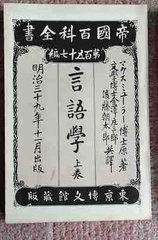 帝國百科全書
第百五十七編
マクスミュラー博士原著
文學博士金澤庄三郎
後藤朝太郎 共譯
言語學 上卷
明治三十九年十一月出版
東京博文館藏版